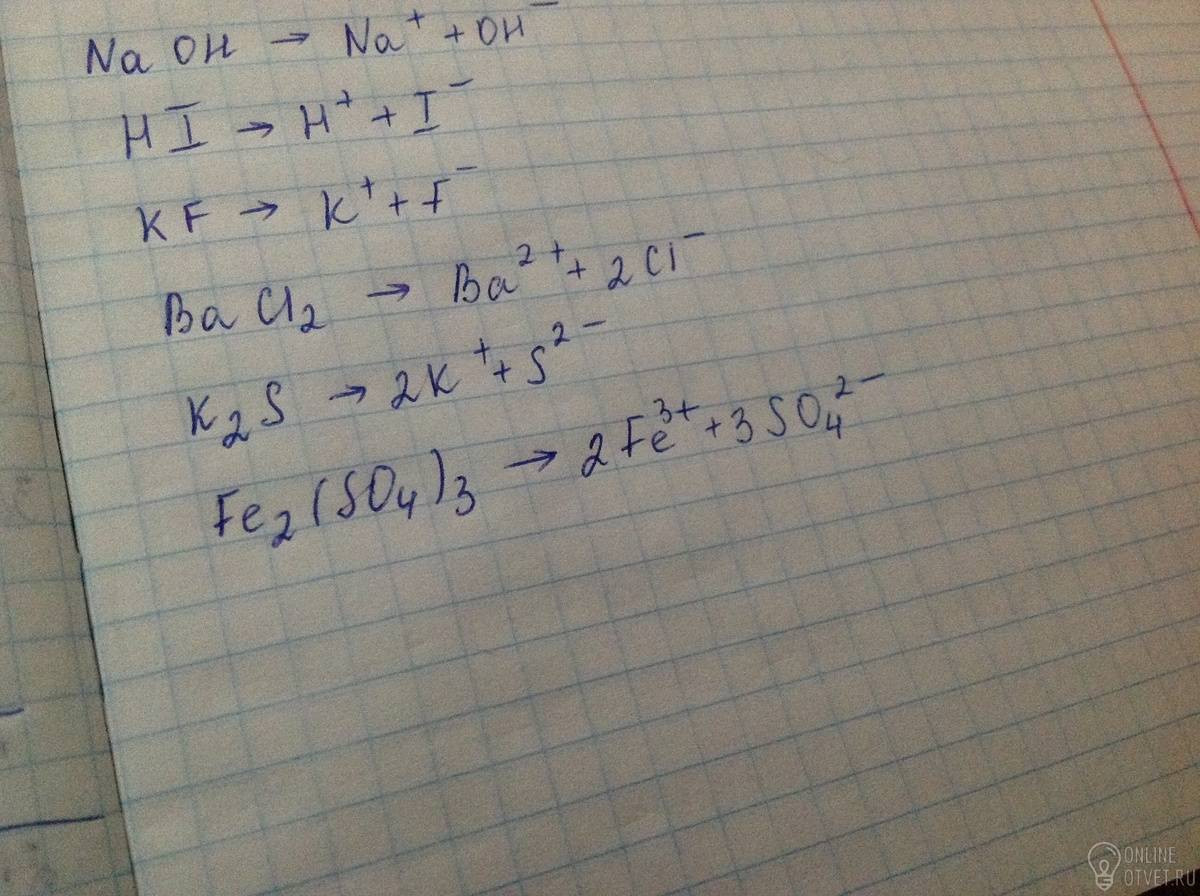 NaOH → Na⁺ + OH⁻
HI → H⁺ + I⁻
KF → K⁺ + F⁻
BaCl₂ → Ba²⁺ + 2Cl⁻
K₂S → 2K⁺ + S²⁻
Fe₂(SO₄)₃ → 2Fe³⁺ + 3SO₄²⁻
ONLINE
OTVET.RU